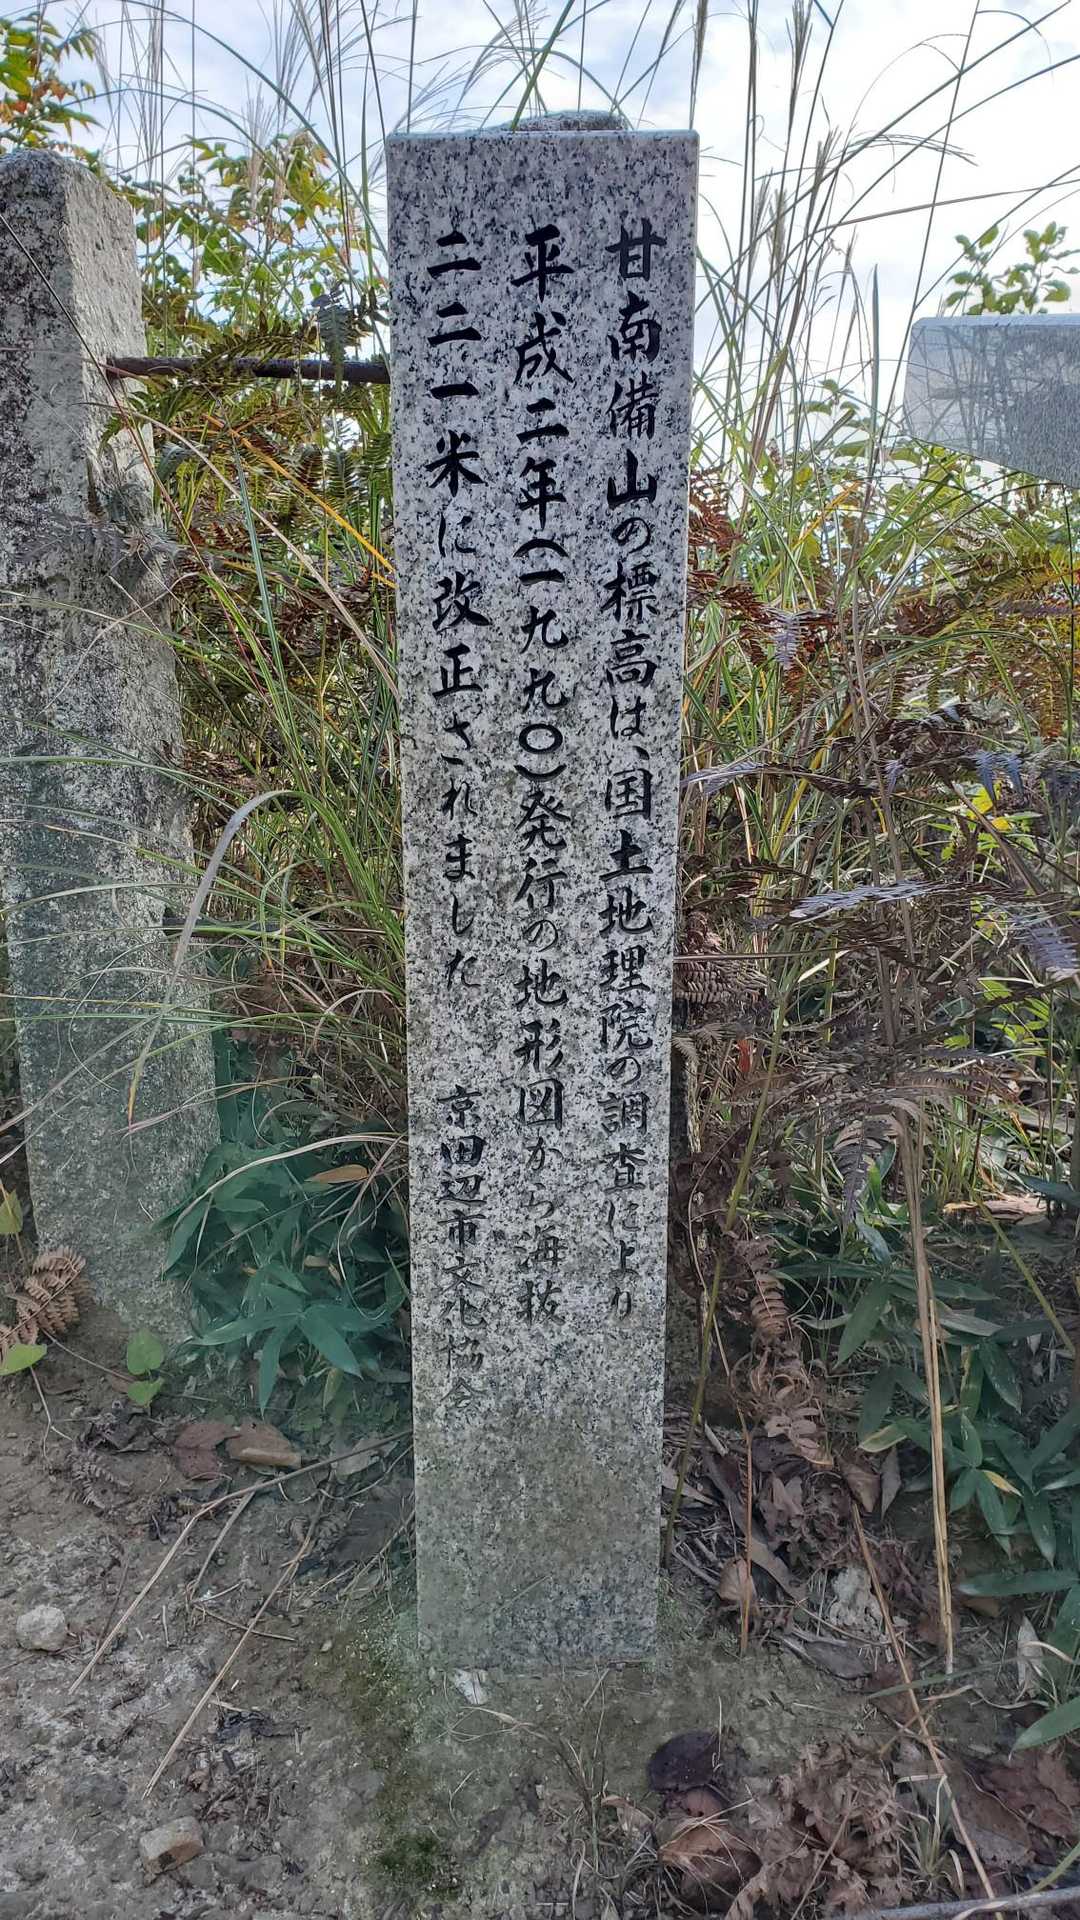 甘南備山の標高は、国土地理院の調査により
平成二年(一九九〇)発行の地形図から海抜
二二一米に改正されました 京田辺市文化協会